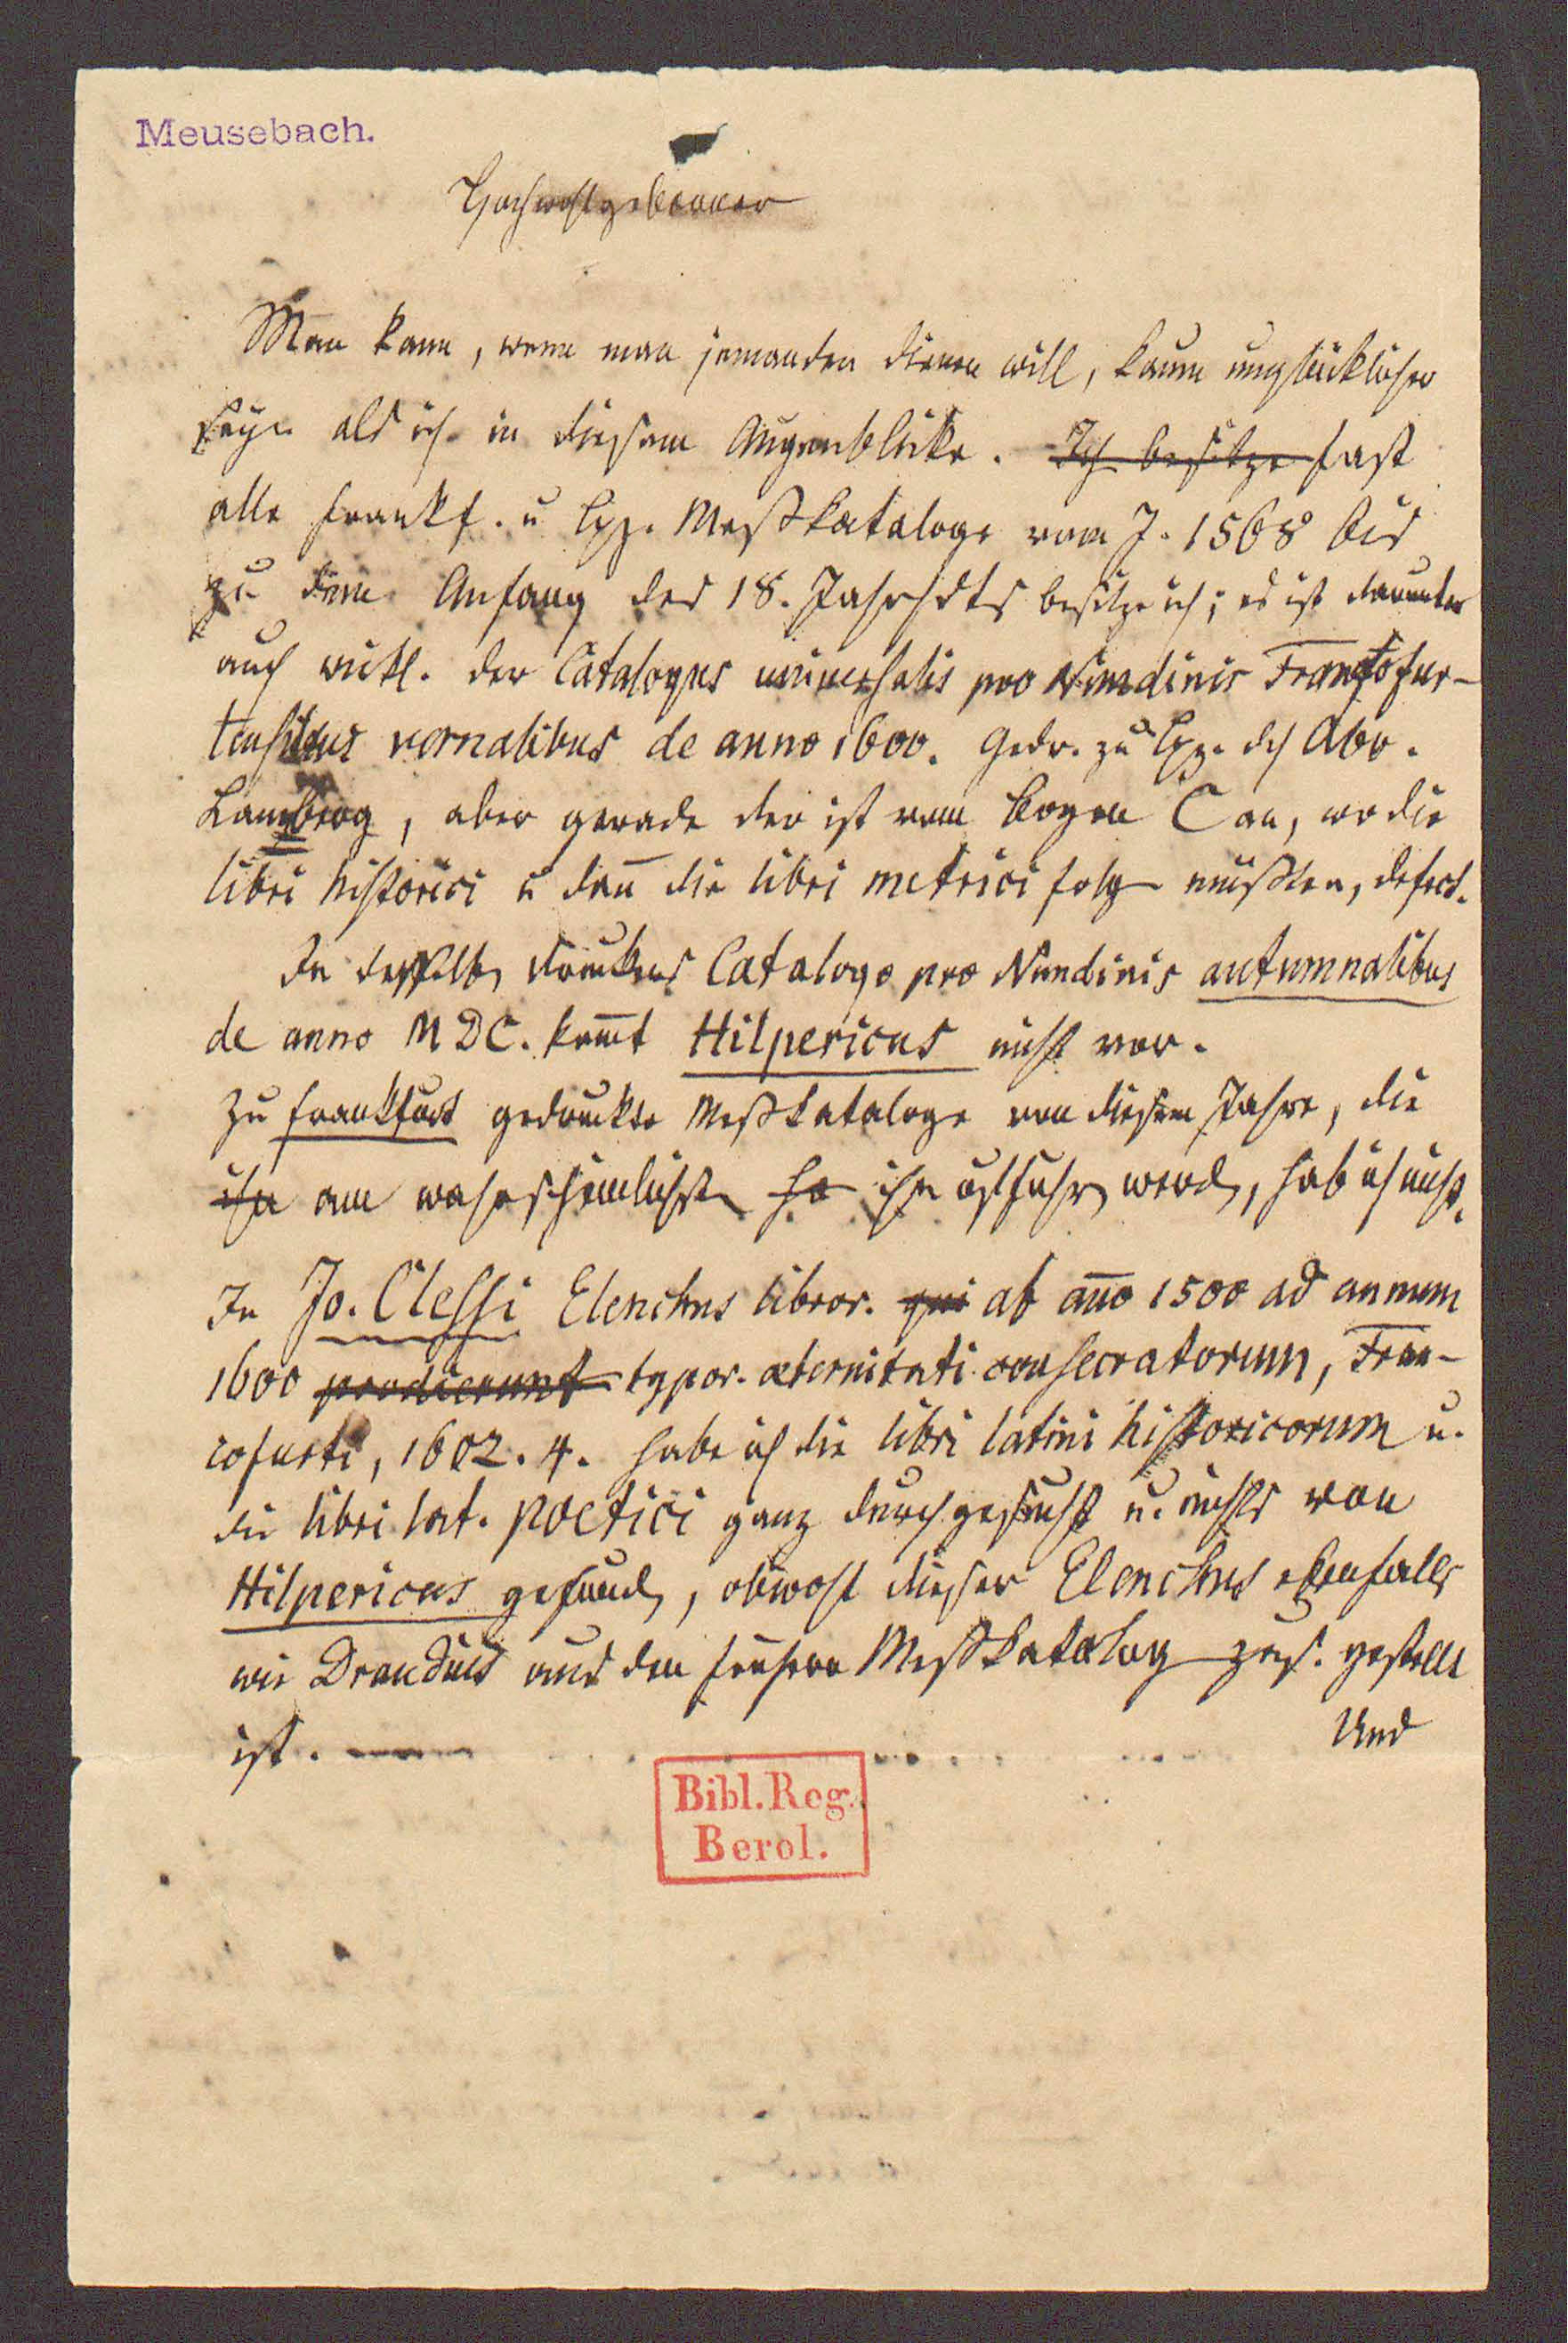 Meusebach.
Hochwohlgeborner
Man kann, wenn man jemanden dienen will, kaum unglücklicher
seyn als ich in diesem Augenblicke. Ich besitze fast
alle Frankf. u Lpz. Meßkataloge vom J. 1568 bis
zu dem Anfang des 18. Jahrhdts besitze ich; es ist darunter
auch wirkl. der Catalogus universalis pro Nundinis Francofur-
tensibus vernalibus de anno 1600. Gedr. zu Lpz. dch Abr.
Lamberg, aber gerade der ist vom Bogen C an, wo die
libri historici u dañ die libri metrici folgen müßten, defect.
In desselben Druckers Catalogo pro Nundinis autumnalibus
de anno MDC. kom̄t Hilpericus nicht vor.
Zu Frankfurt gedruckte Meßkataloge von diesem Jahre, die
ihn am wahrscheinlichsten ha ihn aufführen werden, hab ich nicht.
In Jo. Clessi Elenchus libror. qui ab an̄o 1500 ad annum
1600 prodierunt typor. æternitati consecratorum, Fran-
cofurti, 1602. 4. habe ich die libri latini historicorum u.
die libri lat. poetici ganz durchgesucht u. nichts von
Hilpericus gefunden, obwohl dieser Elenchus ebenfalls
wie Draudius aus den frühern Meßkatalogen zus. gestellt
ist. Und
Bibl. Reg.
Berol.